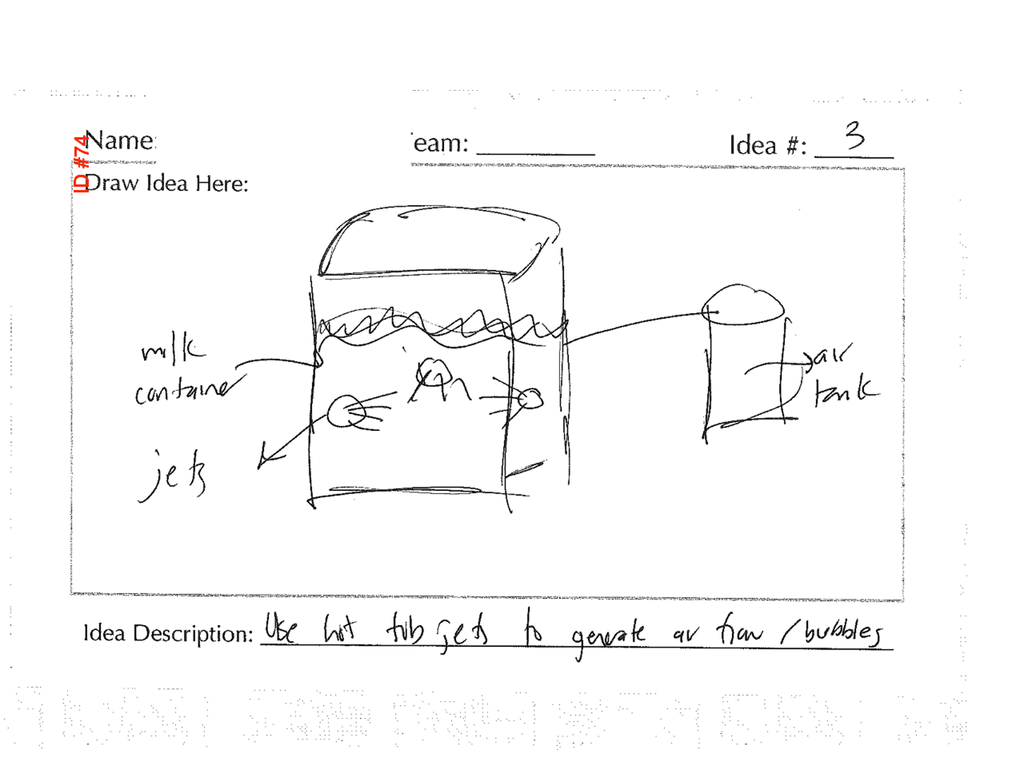 ID #74
Name:
eam:
Idea #: 3
Draw Idea Here:
milk
container
air
tank
jets
Idea Description: Use hot tub jets to generate air flow / bubbles